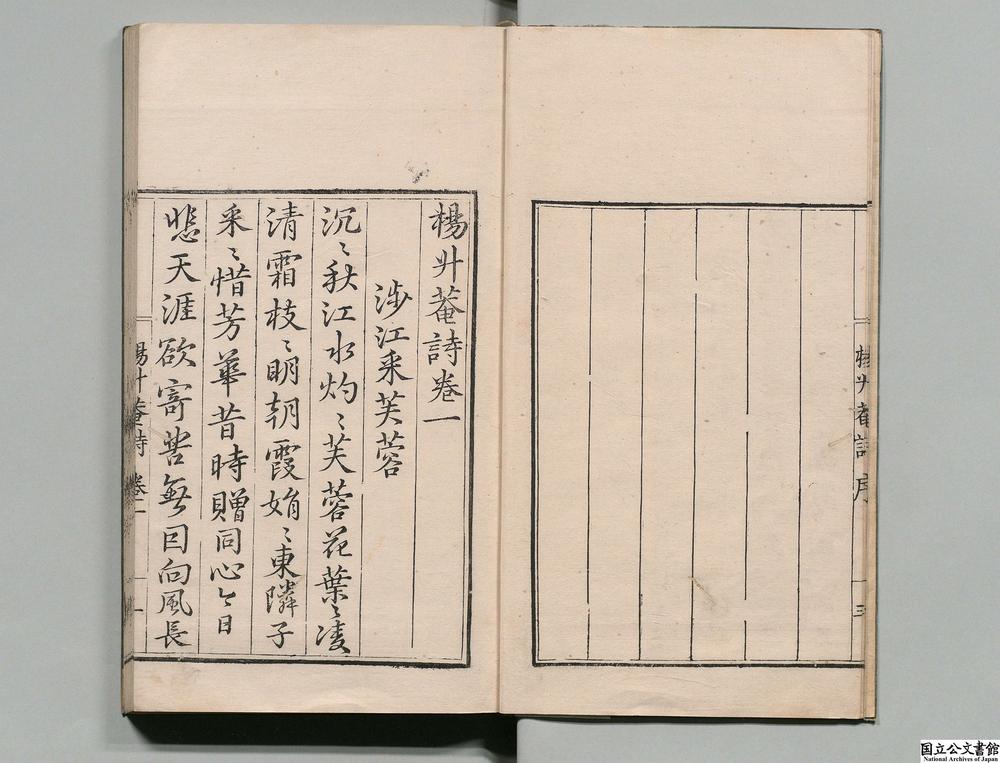 楊升菴詩序
三
楊升菴詩卷一
涉江采芙蓉
沉〻秋江水灼〻芙蓉花葉〻凌
清霜枝〻明朝霞娟〻東隣子
采〻惜芳華昔時贈同心今日
悲天涯欲寄苦無因向風長
楊升菴詩 卷一
一
国立公文書館
National Archives of Japan